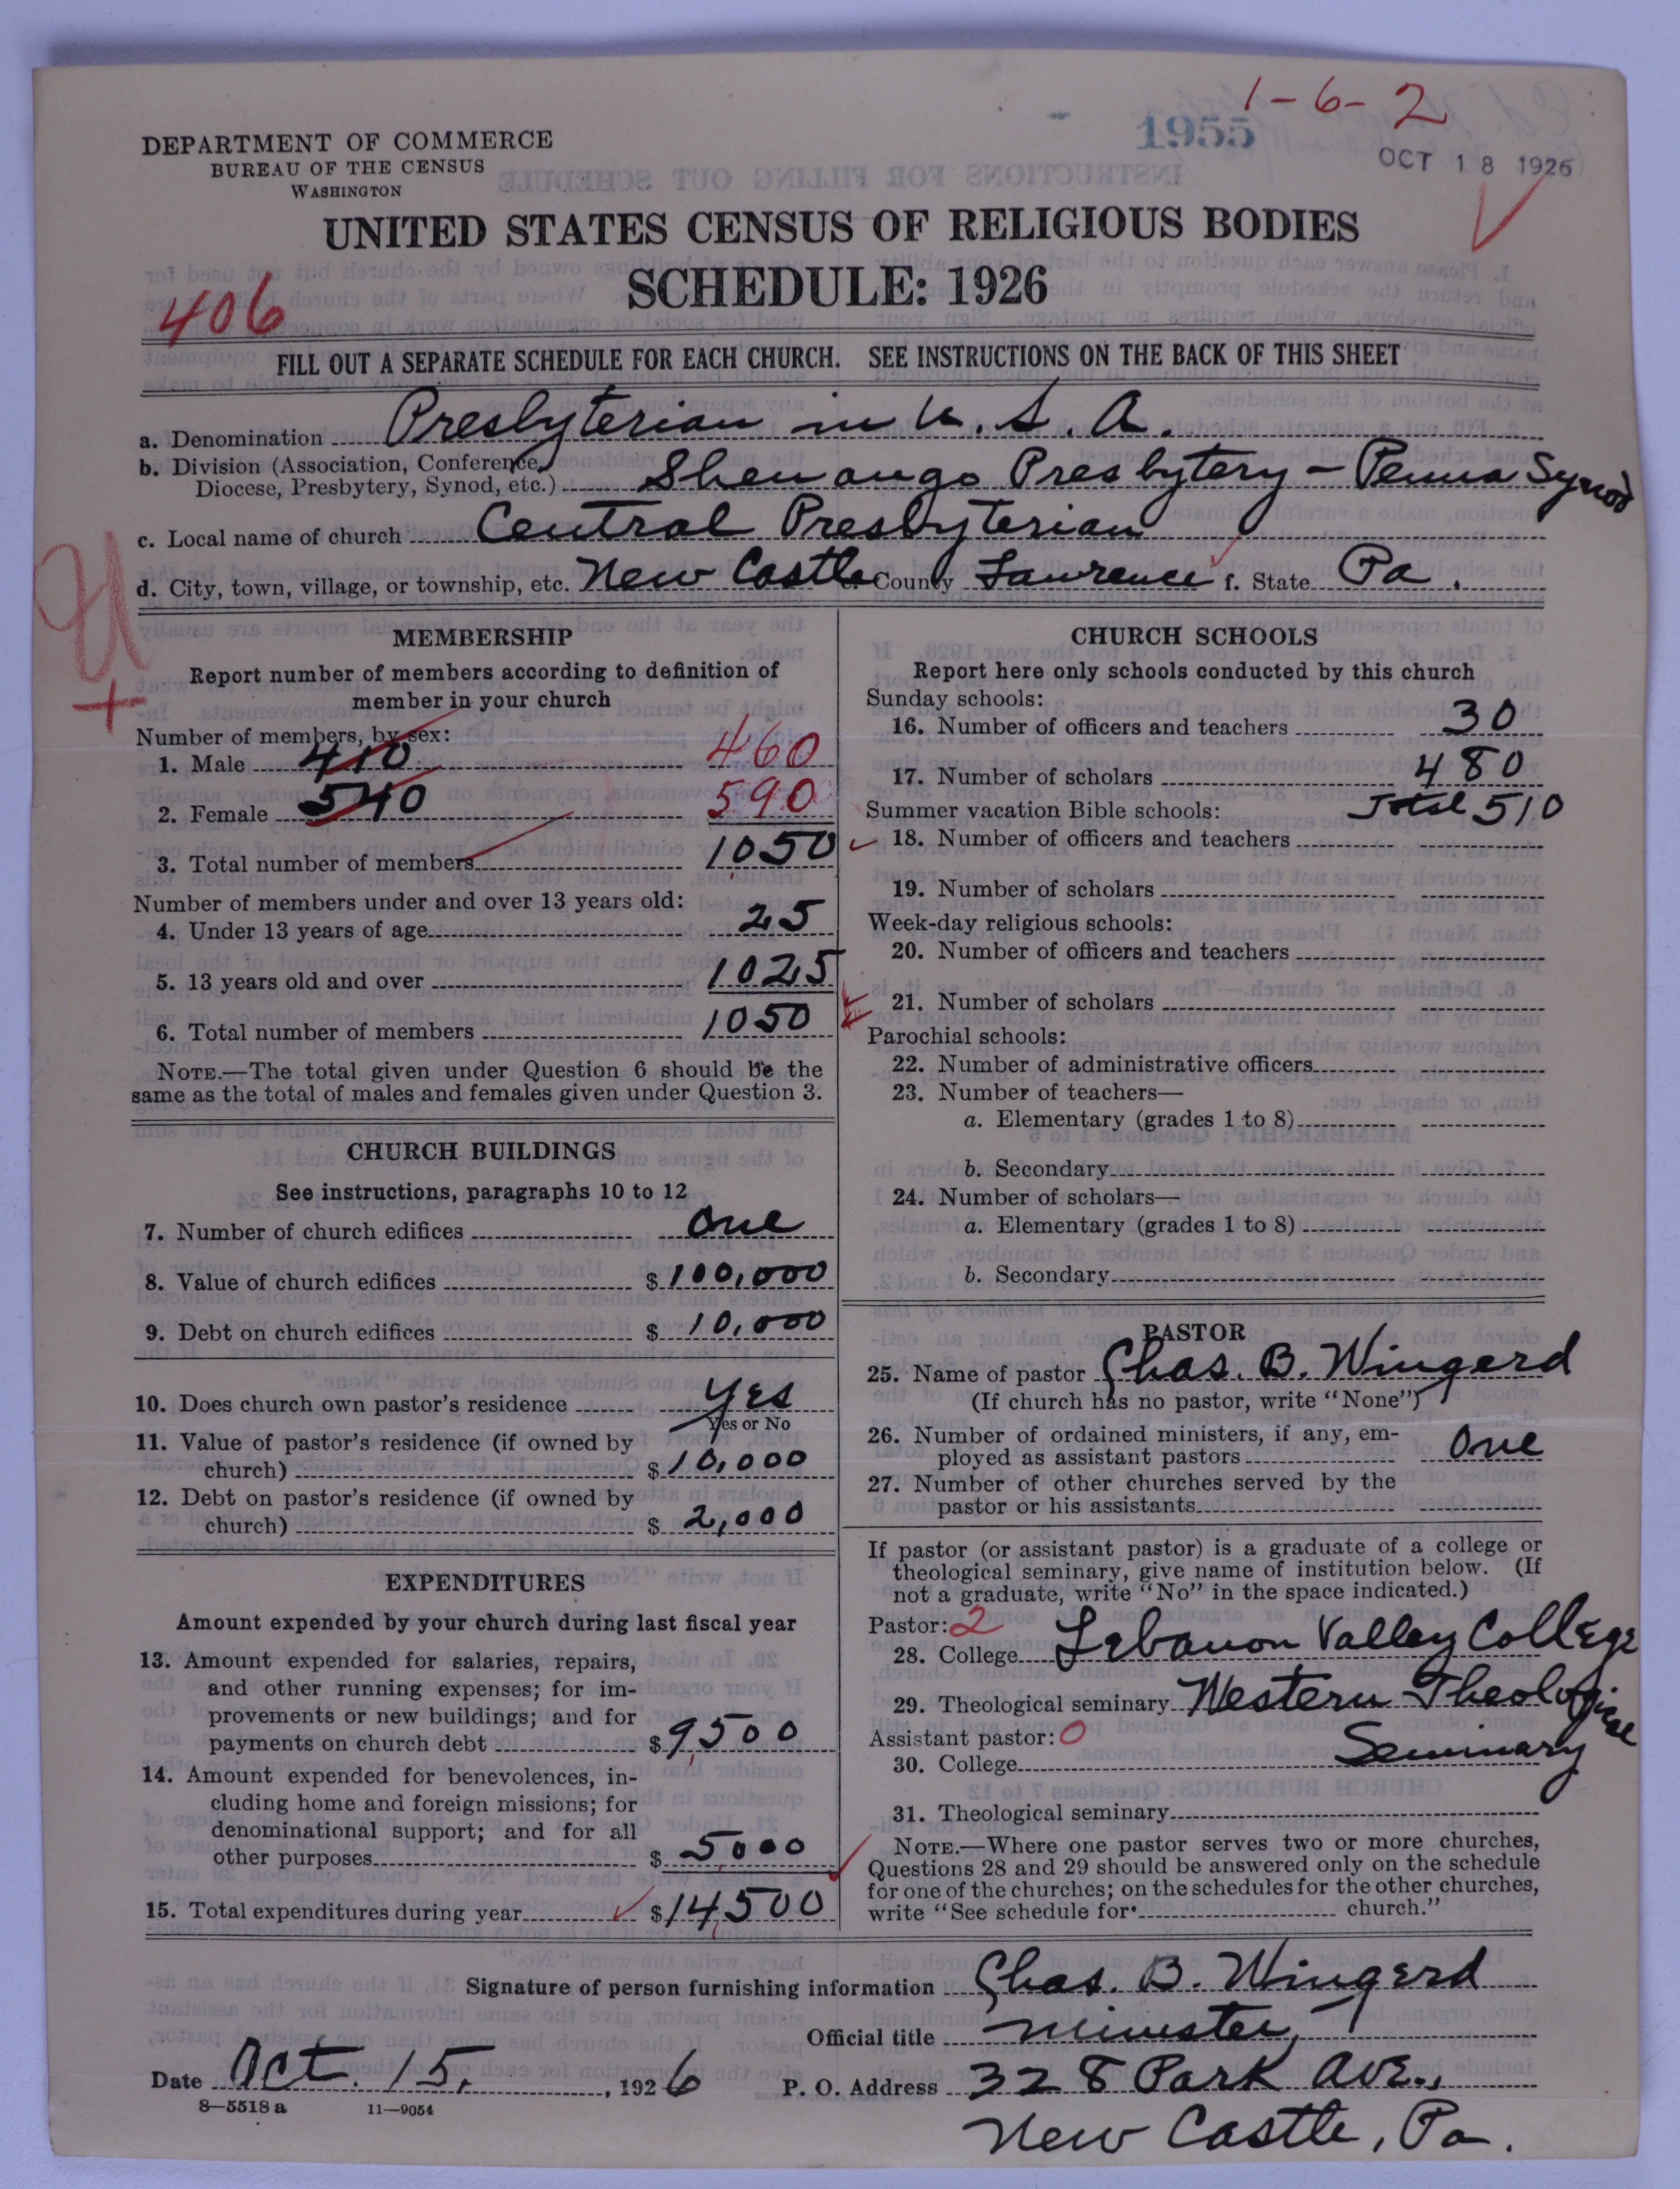 1-6-2
1955
OCT 18 1926
DEPARTMENT OF COMMERCE
BUREAU OF THE CENSUS
WASHINGTON
UNITED STATES CENSUS OF RELIGIOUS BODIES
SCHEDULE: 1926
406
FILL OUT A SEPARATE SCHEDULE FOR EACH CHURCH. SEE INSTRUCTIONS ON THE BACK OF THIS SHEET
a. Denomination Presbyterian in U. S. A.
b. Division (Association, Conference,
Diocese, Presbytery, Synod, etc.) Shenango Presbytery - Penna Synod
c. Local name of church Central Presbyterian
d. City, town, village, or township, etc. New Castle e. County Lawrence f. State Pa.
MEMBERSHIP
Report number of members according to definition of
member in your church
Number of members, by sex:
1. Male 410 460
2. Female 540 590
3. Total number of members 1050
Number of members under and over 13 years old:
4. Under 13 years of age 25
5. 13 years old and over 1025
6. Total number of members 1050
NOTE.—The total given under Question 6 should be the
same as the total of males and females given under Question 3.
CHURCH BUILDINGS
See instructions, paragraphs 10 to 12
7. Number of church edifices One
8. Value of church edifices $100,000
9. Debt on church edifices $10,000
10. Does church own pastor's residence Yes
Yes or No
11. Value of pastor's residence (if owned by
church) $10,000
12. Debt on pastor's residence (if owned by
church) $2,000
EXPENDITURES
Amount expended by your church during last fiscal year
13. Amount expended for salaries, repairs,
and other running expenses; for im-
provements or new buildings; and for
payments on church debt $9,500
14. Amount expended for benevolences, in-
cluding home and foreign missions; for
denominational support; and for all
other purposes $5000
15. Total expenditures during year $14,500
CHURCH SCHOOLS
Report here only schools conducted by this church
Sunday schools:
16. Number of officers and teachers 30
17. Number of scholars 480
Summer vacation Bible schools: Total 510
18. Number of officers and teachers
19. Number of scholars
Week-day religious schools:
20. Number of officers and teachers
21. Number of scholars
Parochial schools:
22. Number of administrative officers
23. Number of teachers—
a. Elementary (grades 1 to 8)
b. Secondary
24. Number of scholars—
a. Elementary (grades 1 to 8)
b. Secondary
PASTOR
25. Name of pastor Chas. B. Wingerd
(If church has no pastor, write "None")
26. Number of ordained ministers, if any, em-
ployed as assistant pastors One
27. Number of other churches served by the
pastor or his assistants
If pastor (or assistant pastor) is a graduate of a college or
theological seminary, give name of institution below. (If
not a graduate, write "No" in the space indicated.)
Pastor: 2
28. College Lebanon Valley College
29. Theological seminary Western Theological
Assistant pastor: 0 Seminary
30. College
31. Theological seminary
NOTE.—Where one pastor serves two or more churches,
Questions 28 and 29 should be answered only on the schedule
for one of the churches; on the schedules for the other churches,
write "See schedule for church."
Signature of person furnishing information Chas. B. Wingerd
Official title Minister,
Date Oct. 15, 1926 P. O. Address 328 Park Ave.,
8—5518 a 11—9054
New Castle, Pa.